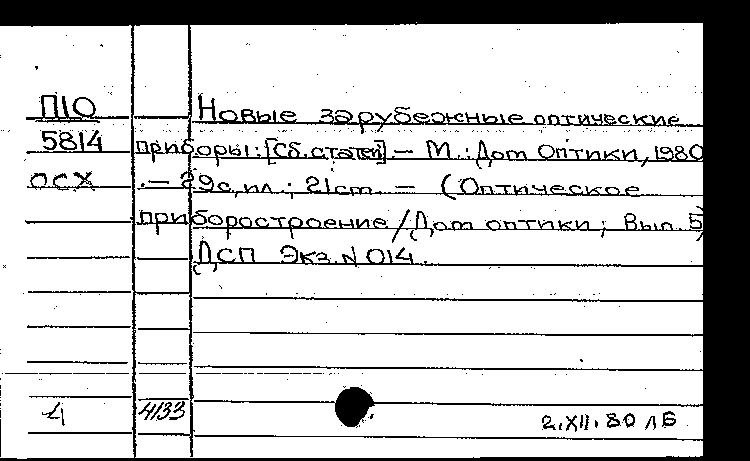 П10 Новые зарубежные оптические
5814 приборы: [Сб. статей]. — М.: Дом Оптики, 1980
ОСХ . — 29с, ил.; 21ст. — (Оптическое
приборостроение / Дом оптики; Вып. 5)
ДСП Экз. N 014.
4 4133 2.XII.80 ЛБ